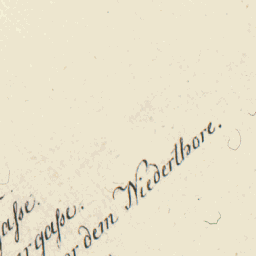 gaſse.
ergaſse.
vor dem Niederthore.